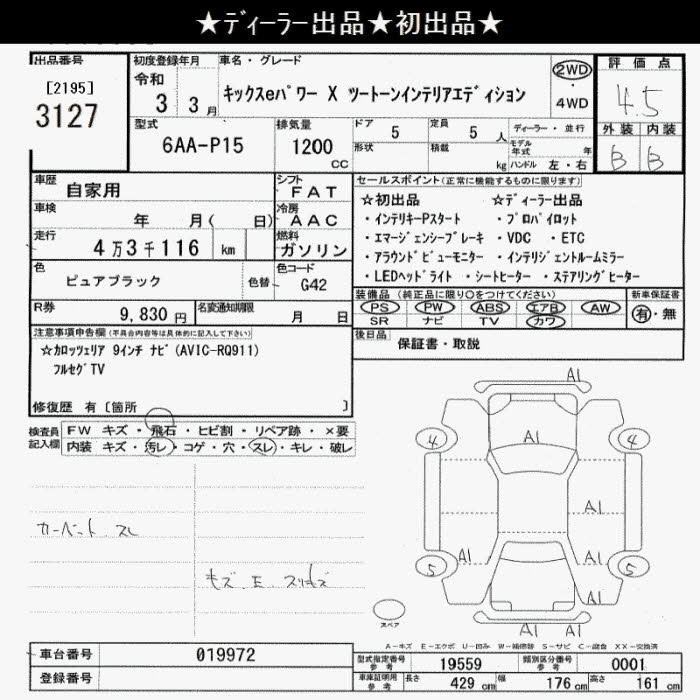 ★ディーラー出品★初出品★
出品番号
[2195]
3127
初度登録年月
令和
3 3月
車名・グレード
キックスeパワー X ツートーンインテリアエディション
2WD
・
4WD
評価点
4.5
外装 内装
B B
型式
6AA-P15
排気量
1200
CC
ドア 5
形状
定員 5人
積載 kg
ディーラー・並行
モデル年式 年
ハンドル 左・右
車歴
自家用
シフト
FAT
車検
年 月( 日)
冷房
AAC
走行
4万3千116 km
燃料
ガソリン
色
ピュアブラック
色替
色コード
G42
R券
9,830円
名変通知期限
月 日
セールスポイント(正常に機能するものに限ります)
☆初出品 ☆ディーラー出品
・インテリキーPスタート ・プロパイロット
・エマージェンシーブレーキ ・VDC ・ETC
・アラウンドビューモニター ・インテリジェントルームミラー
・LEDヘッドライト ・シートヒーター ・ステアリングヒーター
装備品(純正品に限り○をつけてください)
PS PW ABS エアB AW
SR ナビ TV カワ
新車保証書
有・無
後日品
保証書・取説
注意事項申告欄(不具合内容等は具体的に記入して下さい)
☆カロッツェリア 9インチ ナビ(AVIC-RQ911)
フルセグTV
修復歴 有〔箇所 〕
検査員記入欄
FW キズ・飛石・ヒビ割・リペア跡・×要
内装 キズ・汚レ・コゲ・穴・スレ・キレ・破レ
カーペット スレ
A1
A1
4
4
A1
A1
A1
5
5
A1
A1 A1
スペア
A-キズ E-エクボ U-凹み W-補修跡 S-サビ C-腐食 XX-交換済
車台番号
019972
登録番号
型式指定番号参考
19559
類別区分番号参考
0001
車庫証明用参考
長さ 429cm
幅 176cm
高さ 161cm